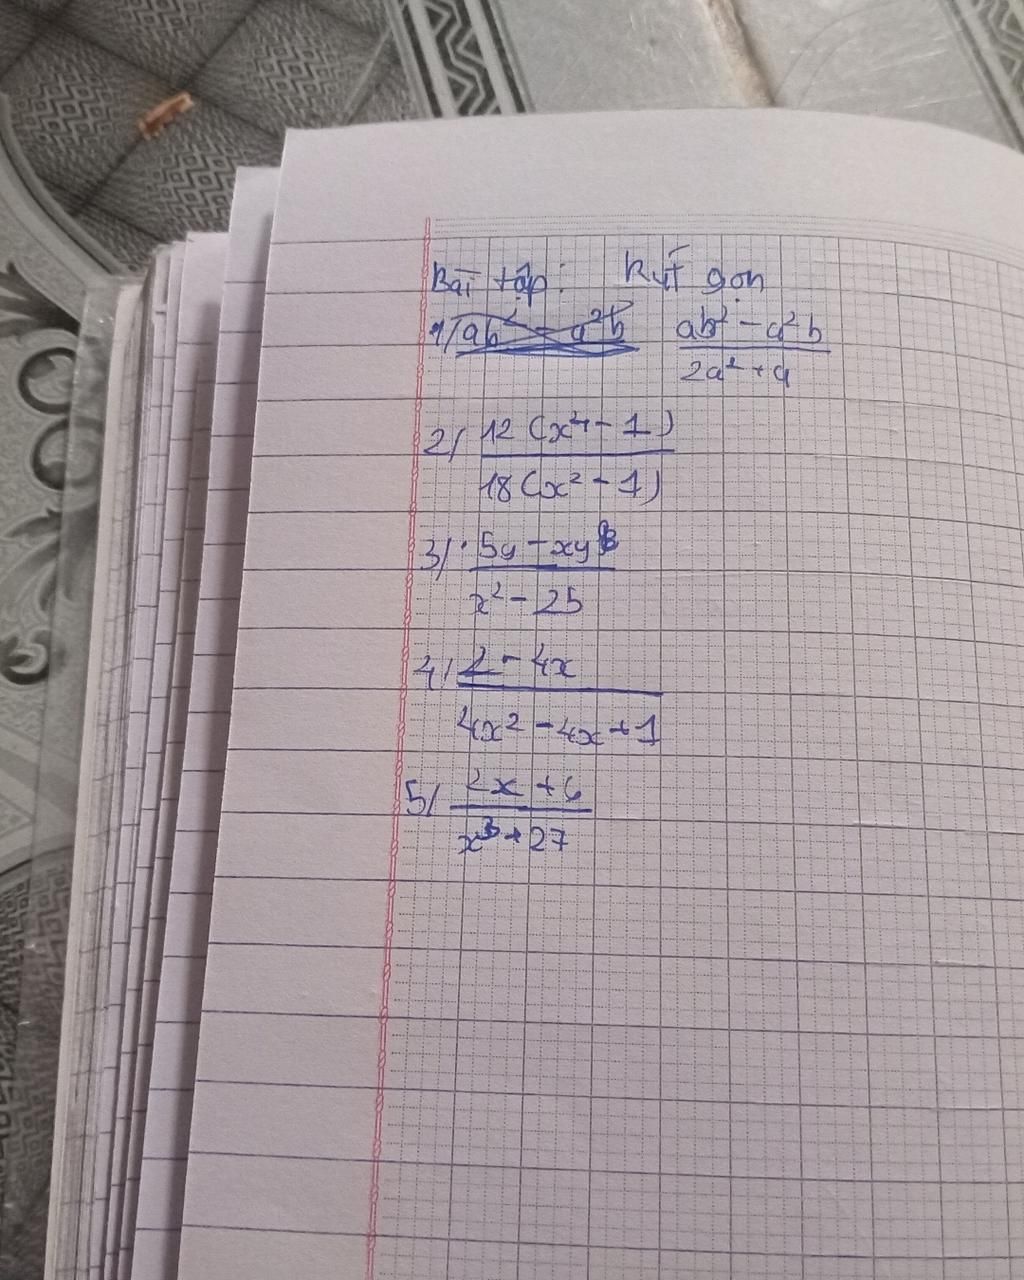 Bài tập: Rút gọn
1/ ab² - a²b ab² - a²b
2a² + a
2/ 12 (x⁴ - 1)
18 (x² - 1)
3/ 5y - xy
x² - 25
4/ 2 - 4x
4x² - 4x + 1
5/ 2x + 6
x³ + 27